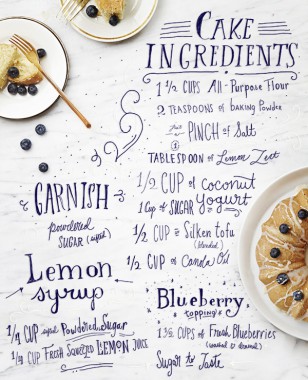 CAKE
INGREDIENTS
1 1/2 CUPS All-Purpose Flour
2 TEASPOONS of baking Powder
PINCH of Salt
1
TABLESPOON of Lemon Zest
1/2 CUP of Coconut
Yogurt
1 Cup of SUGAR
1/2 CUP of Silken tofu
(blended)
1/2 CUP of Canola Oil
GARNISH
powdered
SUGAR (sifted)
Lemon
syrup
1/4 CUP sifted Powdered Sugar
1/4 CUP FRESH SQUEEZED LEMON JUICE
Blueberry
topping
CUPS of Fresh Blueberries
(washed & drained)
Sugar to Taste